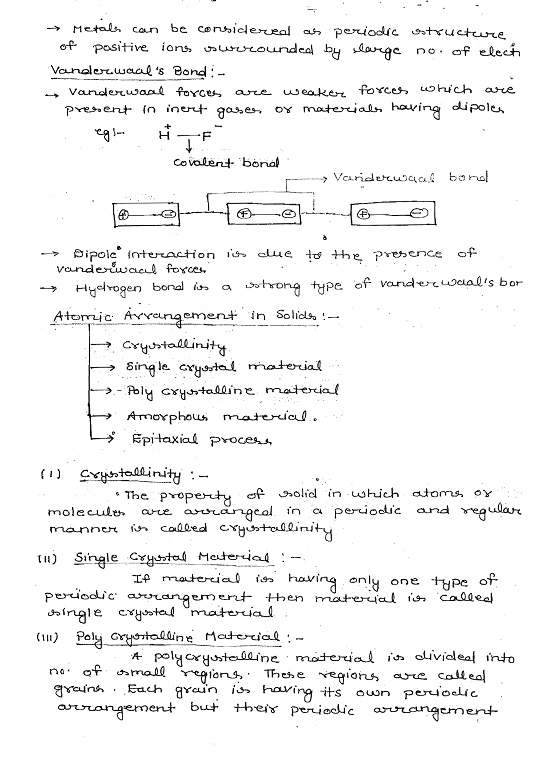 → Metals can be considered as periodic structure
of positive ions surrounded by large no. of elect
Vanderwaal's Bond :-
→ Vanderwaal forces are weaker forces which are
present in inert gases or materials having dipoles
eg:- H+ — F-
covalent bond
→ Vanderwaal bond
+ - + - + -
→ Dipole interaction is due to the presence of
vanderwaal forces
→ Hydrogen bond is a strong type of vanderwaal's bon
Atomic Arrangement in Solids :-
→ Crystallinity
→ Single crystal material
→ Poly crystalline material
→ Amorphous material.
→ Epitaxial process
(I) Crystallinity :-
The property of solid in which atoms or
molecules are arranged in a periodic and regular
manner is called crystallinity
(II) Single Crystal Material :-
If material is having only one type of
periodic arrangement then material is called
single crystal material.
(III) Poly Crystalline Material :-
A polycrystalline material is divided into
no. of small regions. These regions are called
grains. Each grain is having its own periodic
arrangement but their periodic arrangement